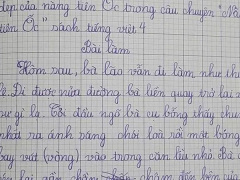 đẹp của nàng tiên Ốc trong câu chuyện "Nà
tiên Ốc" sách tiếng việt 4
Bài làm
Hôm sau, bà lão vẫn đi làm như thư
lệ. Đi được nửa đường bà liền quay trở lại
sự gì lạ. Tới đầu ngõ bà cụ bỗng thấy chu
phát ra ánh sáng chói loà rồi một bông
bay vút (vòng) vào trong căn lù nhỏ. Bà
lại gần chum